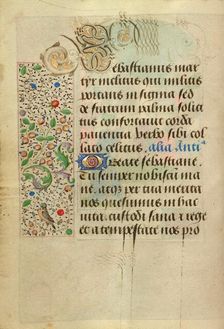 Sebastianus mar
tyr inclitus qui militis
portans insigma sed
de fratrum palma sollici
tus confortauit corda
pauentia Verbo sibi col
lato celitus. alia Anti
O beate sebastiane
Tu semper nobiscum ma
ne. atqz per tua merita
nos qui sumus in hac
uita. custodi sana et rege
et a tempestate nos pro